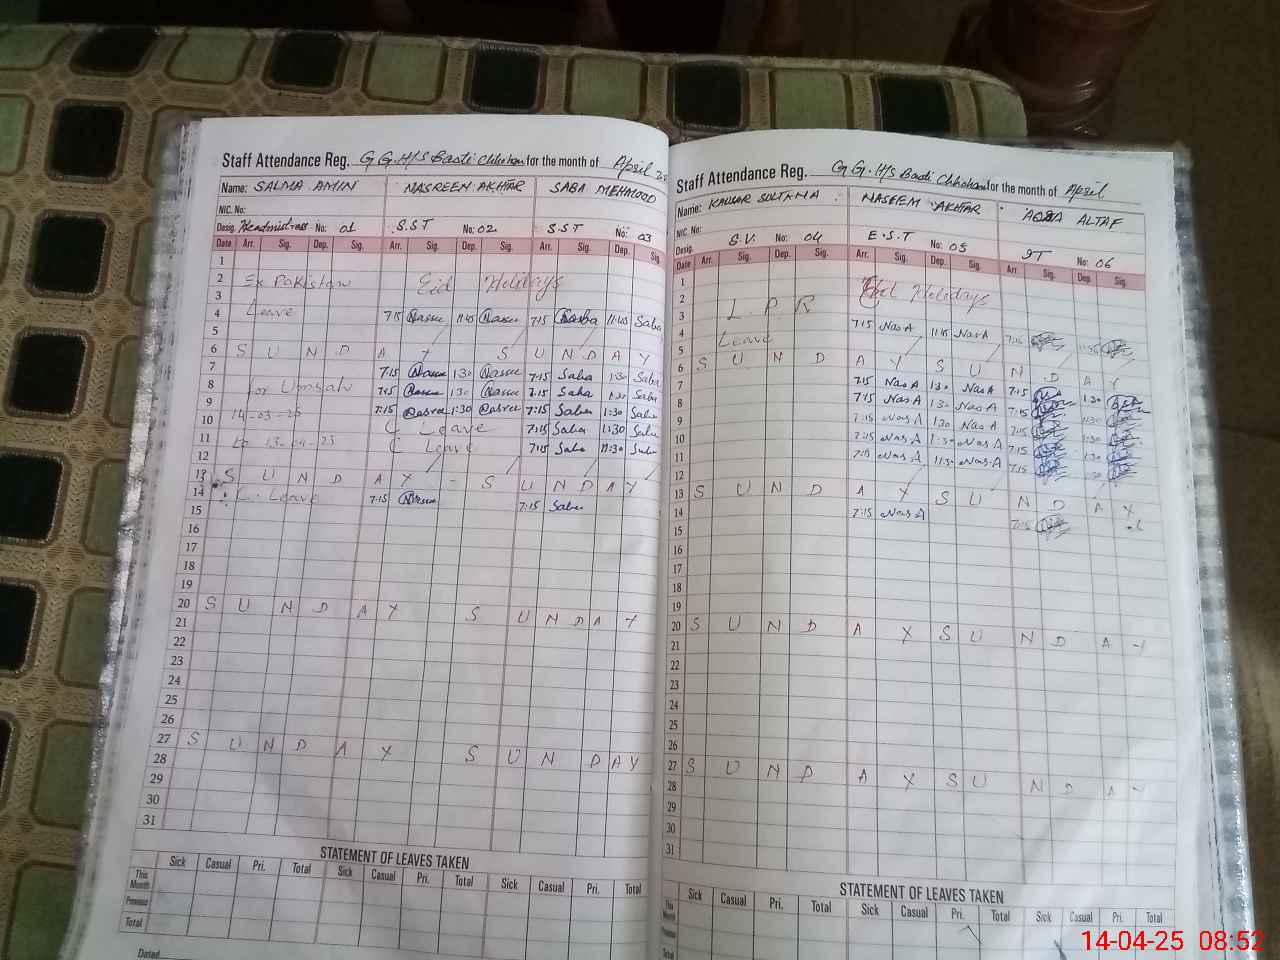 Staff Attendance Reg. G G. H/S Basti Chhohan for the month of April
Name: SALMA AMIN NASREEN AKHTAR SABA MEHMOOD
NIC. No:
Desig. Headmistress No: 01 S.S.T No: 02 S.S.T No: 03
Date Arr. Sig. Dep. Sig. Arr. Sig. Dep. Sig. Arr. Sig. Dep. Sig.
1
2 Ex Pakistan Eid Holidays
3
4 Leave 7:15 11:45 7:15 Saba 11:45 Saba
5
6 S U N D A Y S U N D A Y
7 7:15 1:30 7:15 Saba 1:30 Saba
8 for Umrah 7:15 1:30 7:15 Saba 1:30 Saba
9 7:15 1:30 7:15 Saba 1:30 Saba
10 14-03-25 C Leave 7:15 Saba 1:30 Saba
11 to 13-04-25 C Leave 7:15 Saba 11:30 Saba
12
13 S U N D A Y S U N D A Y
14 Leave 7:15 7:15 Saba
15
16
17
18
19
20 S U N D A Y S U N D A Y
21
22
23
24
25
26
27 S U N D A Y S U N D A Y
28
29
30
31
STATEMENT OF LEAVES TAKEN
Sick Casual Pri. Total Sick Casual Pri. Total Sick Casual Pri. Total
This Month
Previous
Total
Dated
Staff Attendance Reg. G G. H/s Basti Chhohan for the month of April
Name: KAUSAR SULTANA NASEEM AKHTAR AQSA ALTAF
NIC. No:
Desig. S.V. No: 04 E.S.T No: 05 IT No: 06
Date Arr. Sig. Dep. Sig. Arr. Sig. Dep. Sig. Arr. Sig. Dep. Sig.
1
2 Holidays
3 L.P R
4 7:15 Nas A 11:45 Nas A 7:15
5 Leave
6 S U N D A Y S U N D A Y
7 7:15 Nas A 1:30 Nas A 7:15 1:30
8 7:15 Nas A 1:30 Nas A 7:15
9 7:15 Nas A 1:30 Nas A 7:15 1:30
10 7:15 Nas A 1:30 Nas A 7:15 1:30
11 7:15 Nas A 11:30 Nas A 7:15
12
13 S U N D A Y S U N D A Y
14 7:15 Nas A 7:15
15
16
17
18
19
20 S U N D A Y S U N D A Y
21
22
23
24
25
26
27 S U N D A Y S U N D A Y
28
29
30
31
STATEMENT OF LEAVES TAKEN
Sick Casual Pri. Total Sick Casual Pri. Total Sick Casual Pri. Total
This Month
Previous
Total
14-04-25 08:52